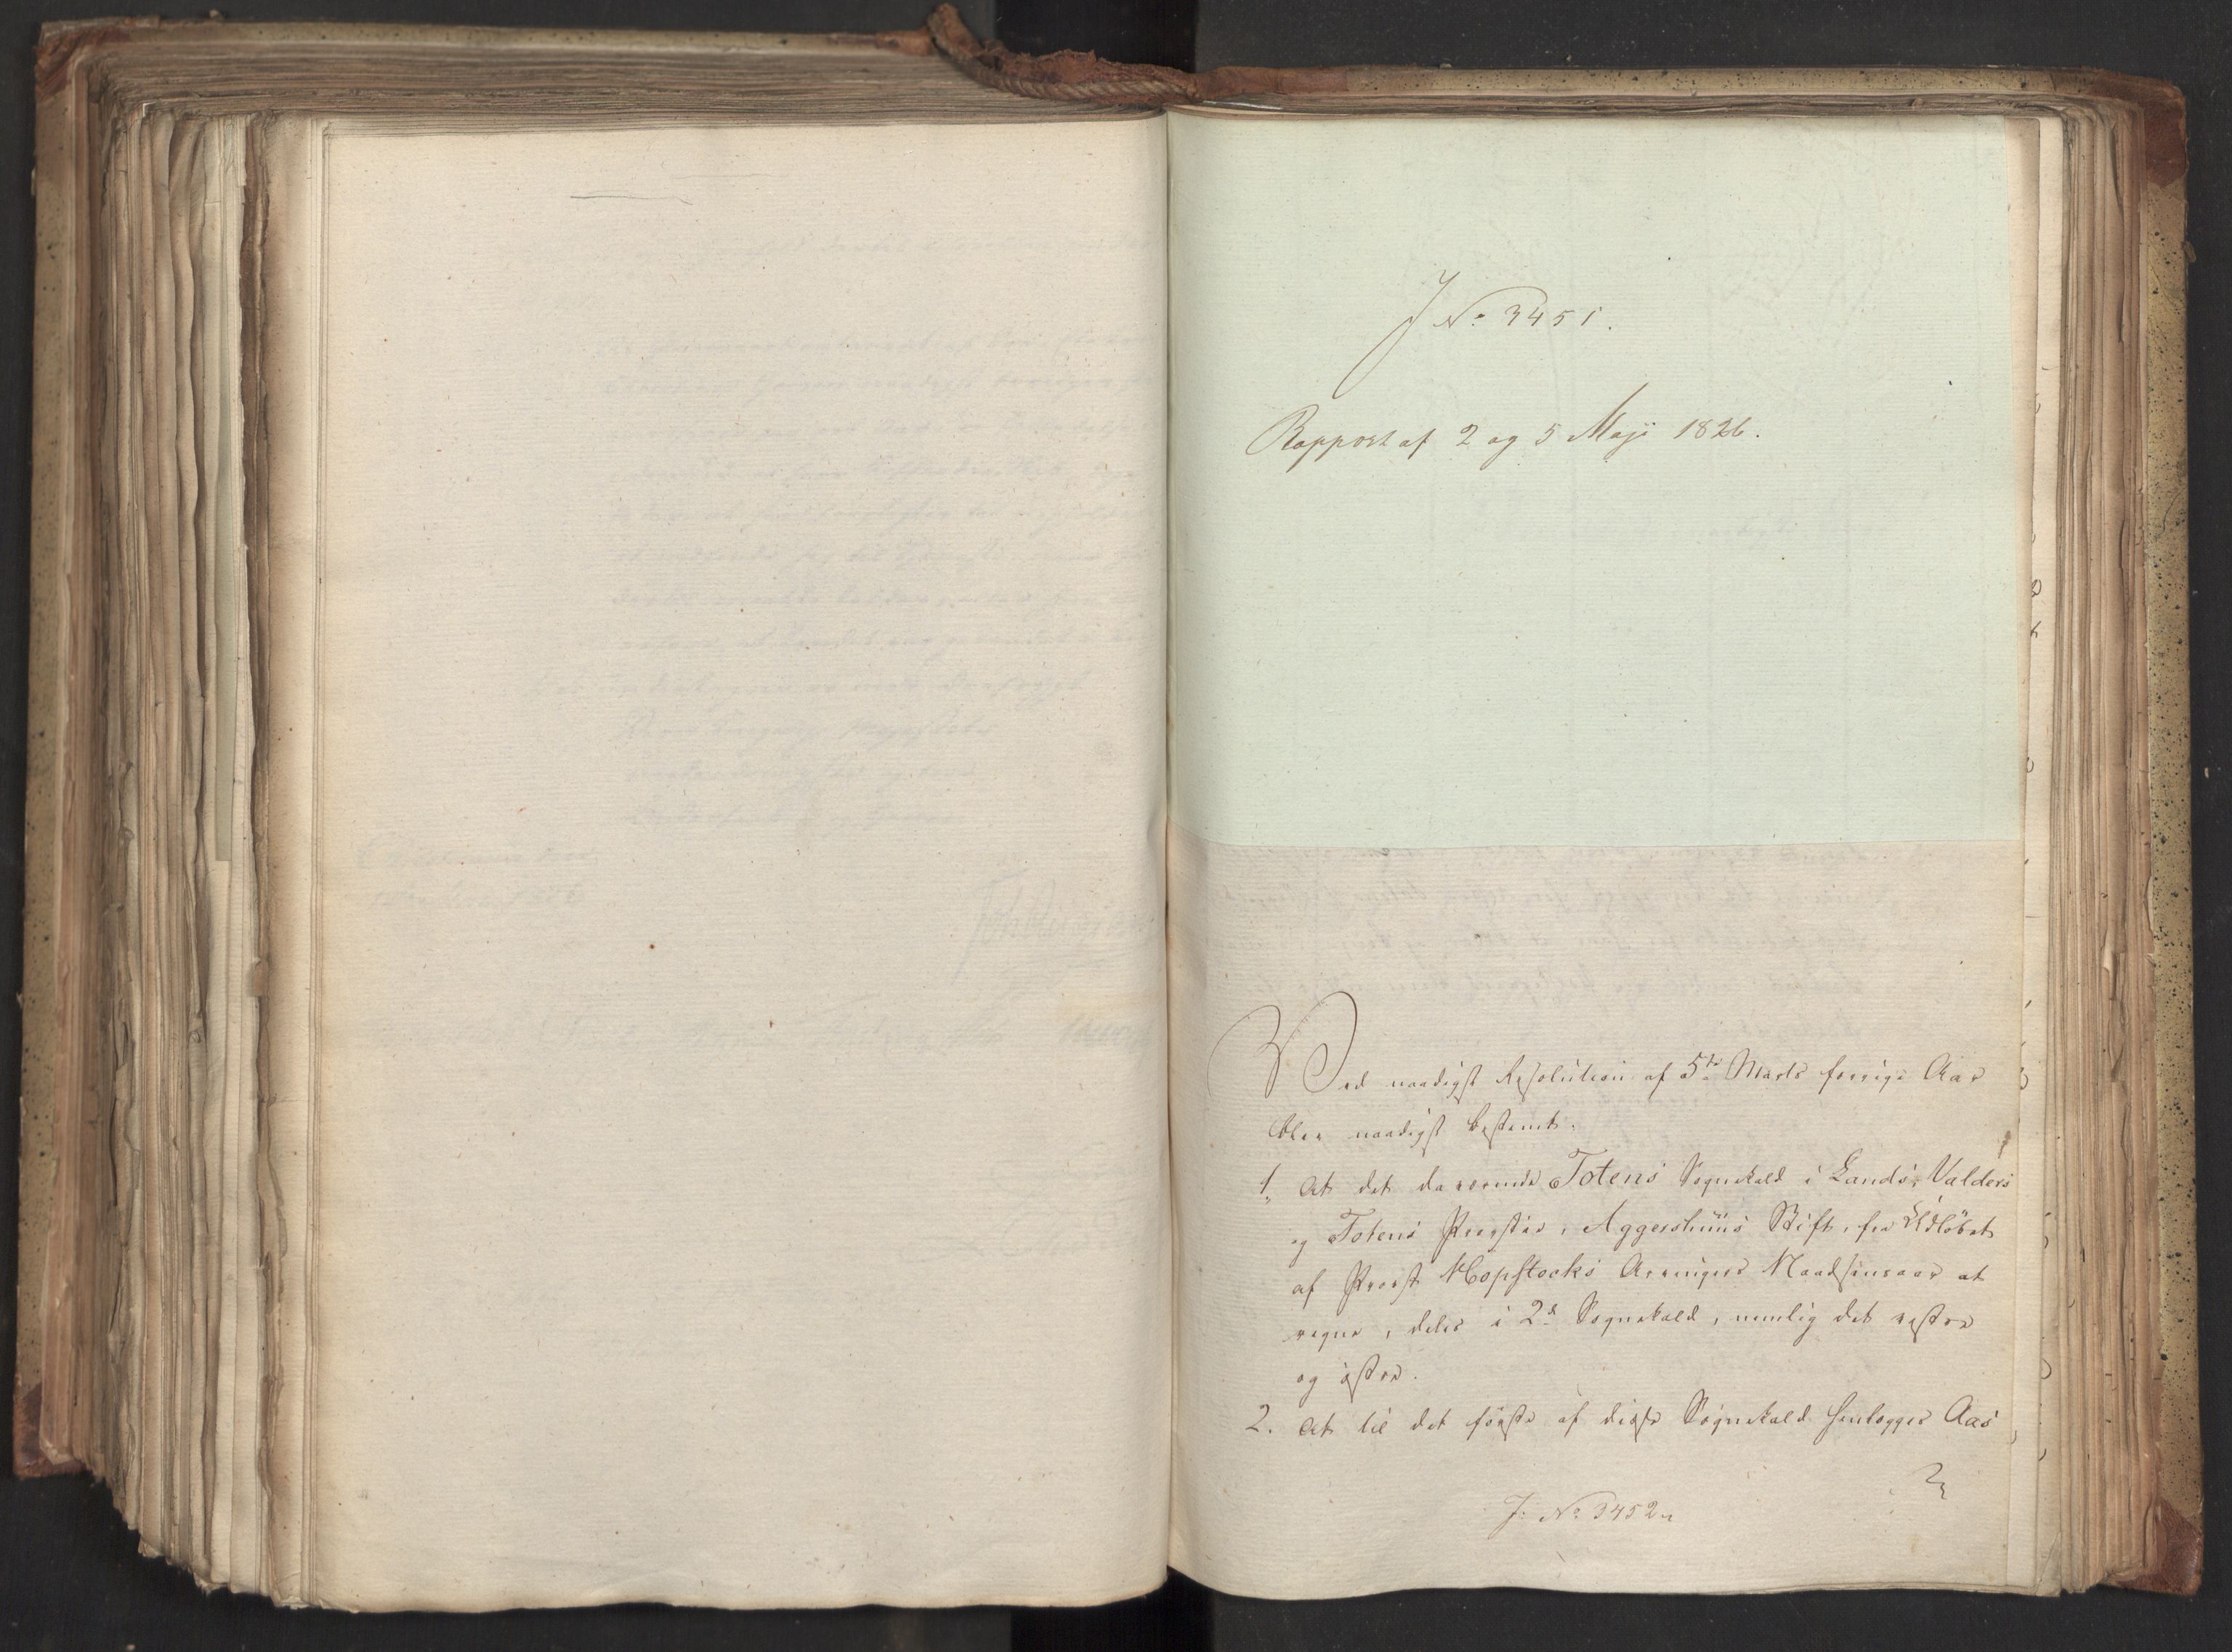 J N: 3451.
Rapport af 2 og 5 Maji 1826.
Ved naadigst Resolution af 5te Marts forrige Aar
blev naadigst bestemt:
1, At det daværende Totens Sognekald i Lands, Valders
og Totens Provstie, Aggershuus Stift, fra Udløbet
af Provst Hopstocks Arvingers Naadsensaar at
regne, deles i 2de Sognekald, nemlig det vestre
og østre.
2. At til det første af disse Sognekald henlægges Aas
J: No 3452